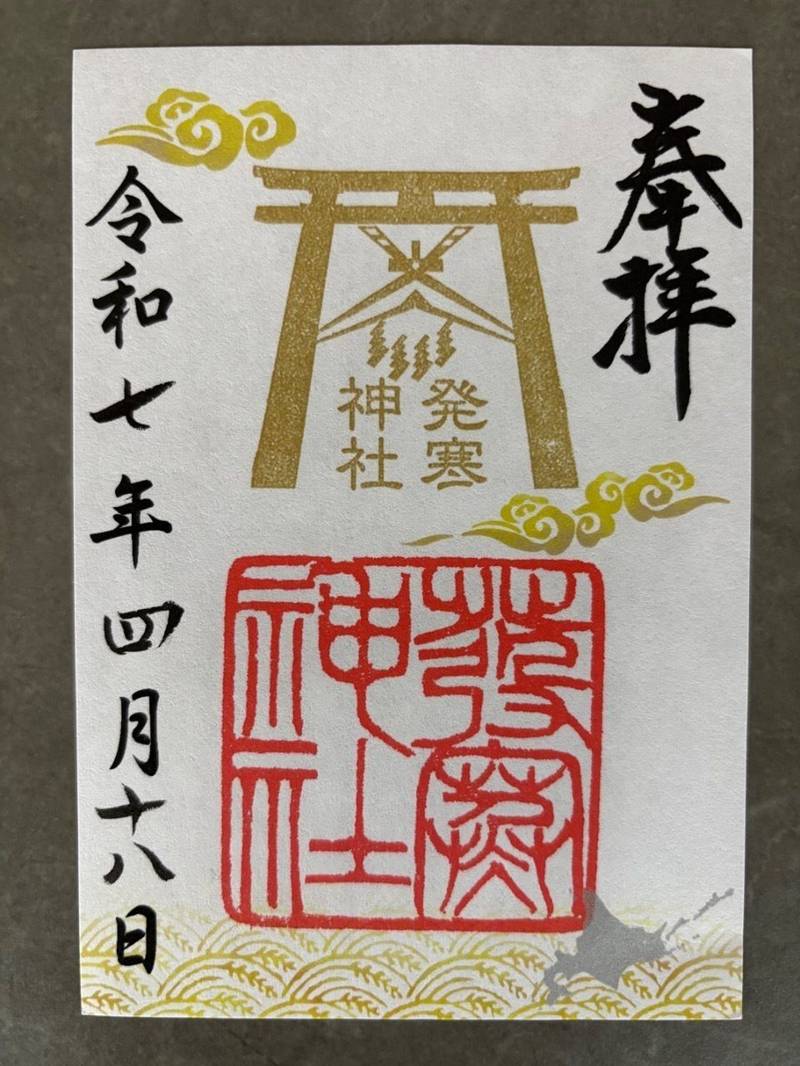 奉拝
発寒
神社
發寒
神社
令和七年四月十八日